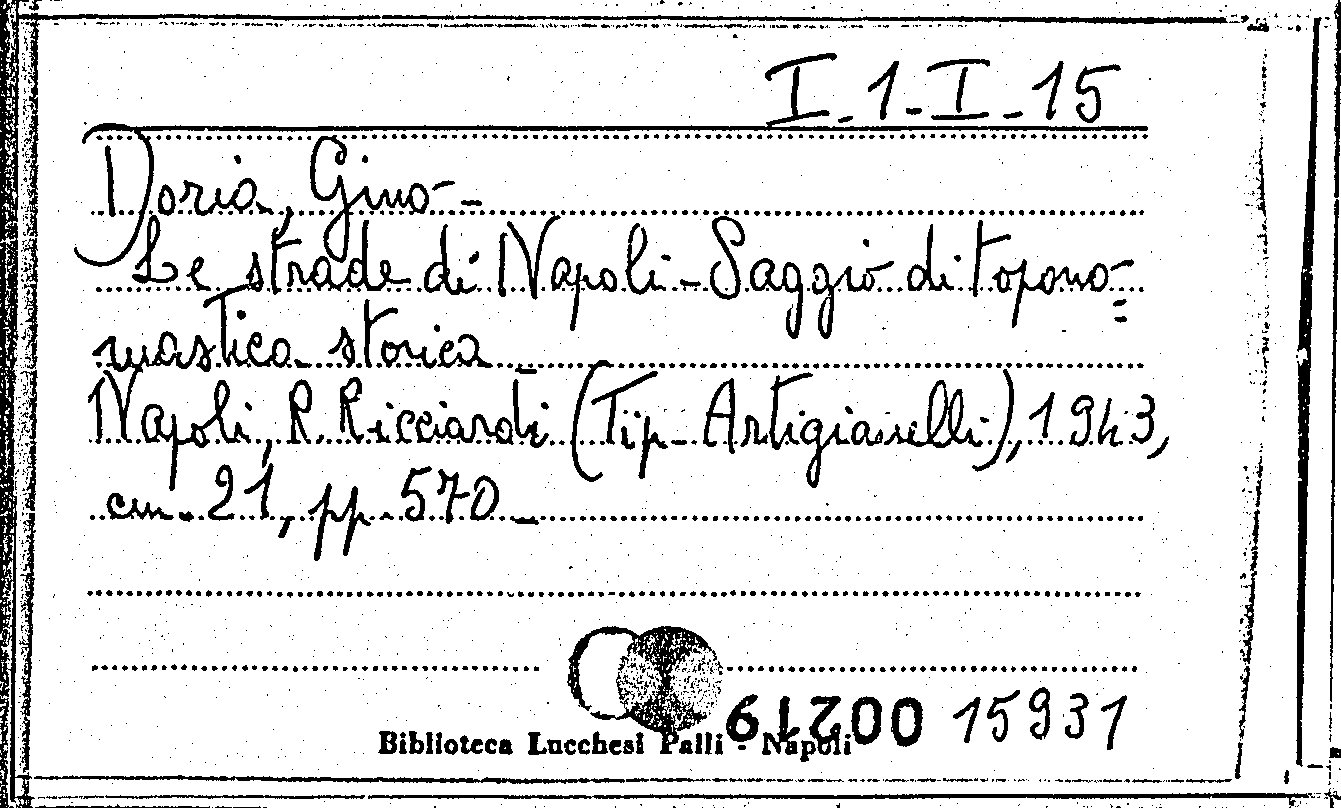 I.1-I-15
Doria, Gino-
Le strade di Napoli-Saggio di topono=
mastica storica-
Napoli, R. Ricciardi (Tip. Artigianelli), 1943,
cm. 21, pp. 570-
002179 15931
Biblioteca Lucchesi Palli - Napoli